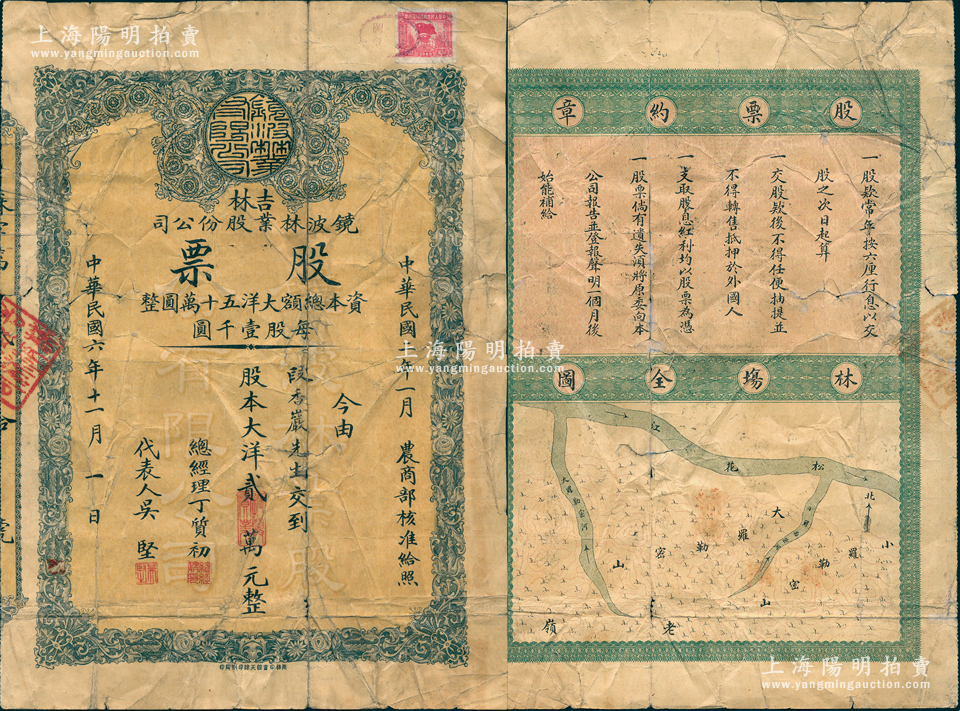 上海陽明拍賣
www.yangmingauction.com
吉林
鏡波林業股份公司
股票
資本總額大洋五十萬圓整
每股壹千圓
中華民國
年一月
農商部核准給照
今由
段香巖先生交到
股本大洋貳萬元整
總經理丁質初
代表人吳堅
中華民國六年十一月一日
股票約章
一股欵常年按六厘行息以交
股之次日起算
一交股欵後不得任便抽提並
不得轉售抵押於外國人
一支取股息紅利均以股票為憑
一股票倘有遺失須將原委向本
公司報告並登報聲明一個月後
始能補給
林塲全圖
松花江
北
大羅勒密河
小羅勒密山
大羅勒密山
老嶺
上海陽明拍賣
www.yangmingauction.com
上海陽明拍賣
www.yangmingauction.com